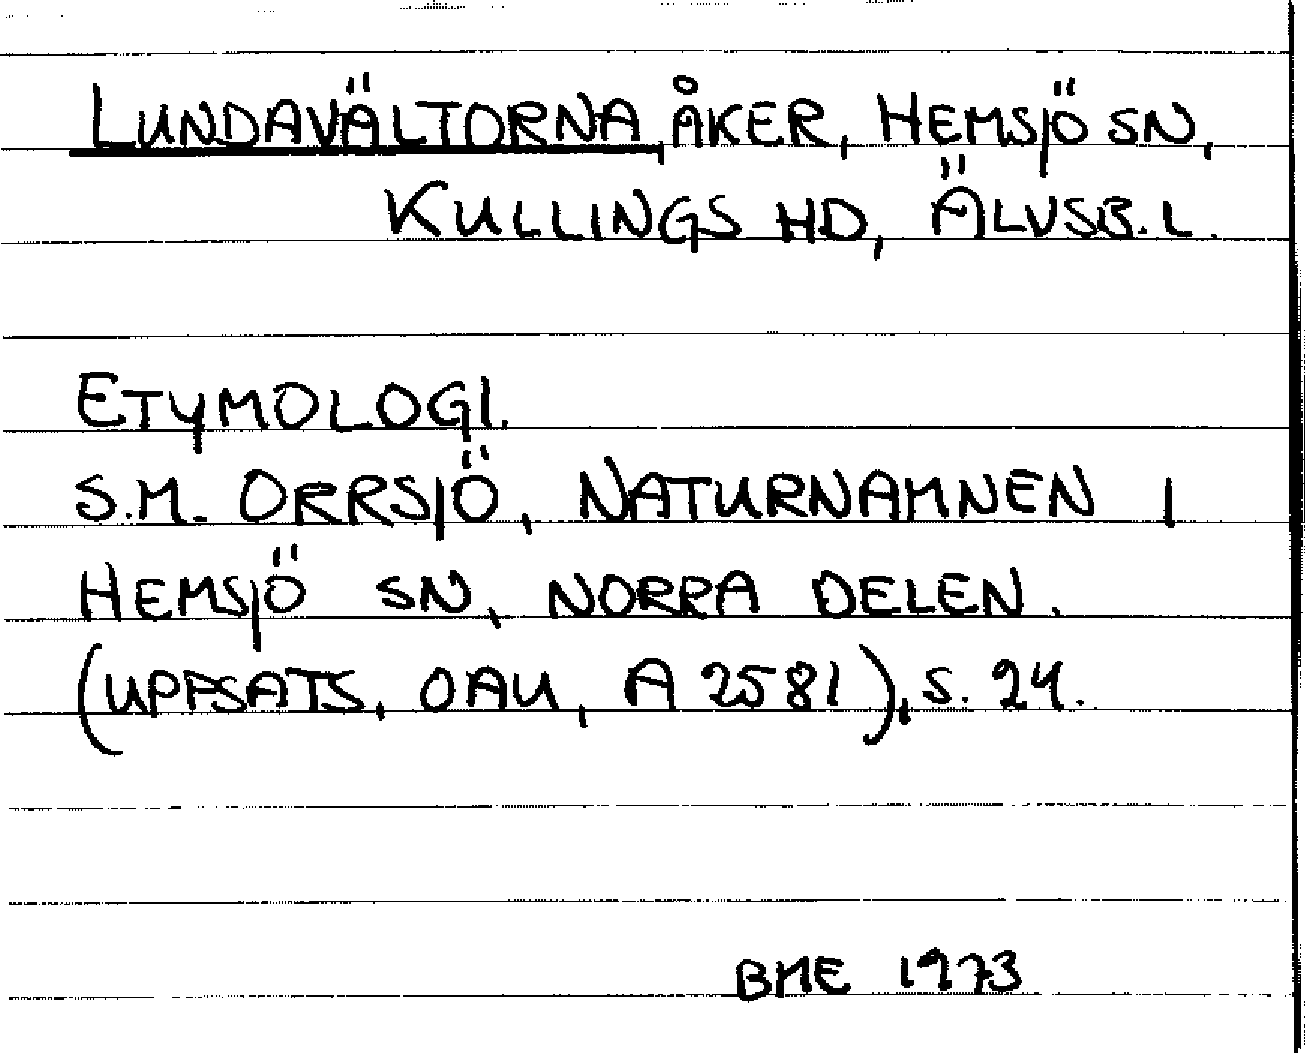 LUNDAVÄLTORNA, ÅKER, HEMSJÖ SN,
KULLINGS HD, ÄLVSB. L.
ETYMOLOGI.
S.M. ORRSJÖ, NATURNAMNEN I
HEMSJÖ SN, NORRA DELEN.
(UPPSATS, OAU, A 2581), S. 24.
BME 1973